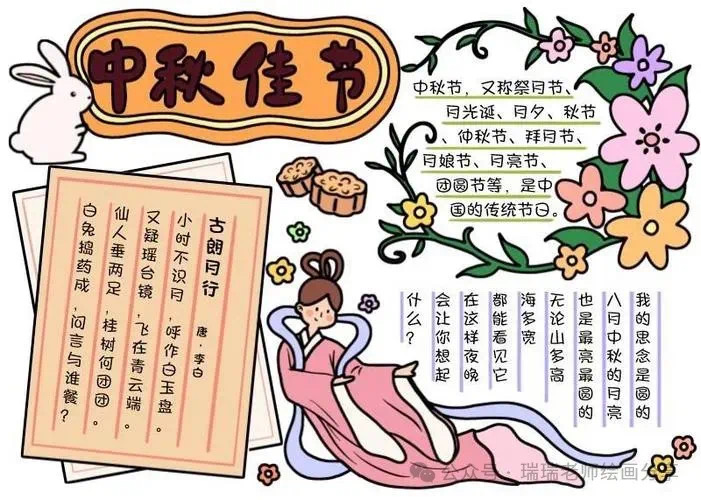 中秋佳节
中秋节，又称祭月节、
月光诞、月夕、秋节
、仲秋节、拜月节、
月娘节、月亮节、
团圆节等，是中
国的传统节日。
古朗月行
唐·李白
小时不识月，呼作白玉盘。
又疑瑶台镜，飞在青云端。
仙人垂两足，桂树何团团。
白兔捣药成，问言与谁餐？
我的思念是圆的
八月中秋的月亮
也是最亮最圆的
无论山多高
海多宽
都能看见它
在这样夜晚
会让你想起
什么？
公众号·瑞瑞老师绘画分享